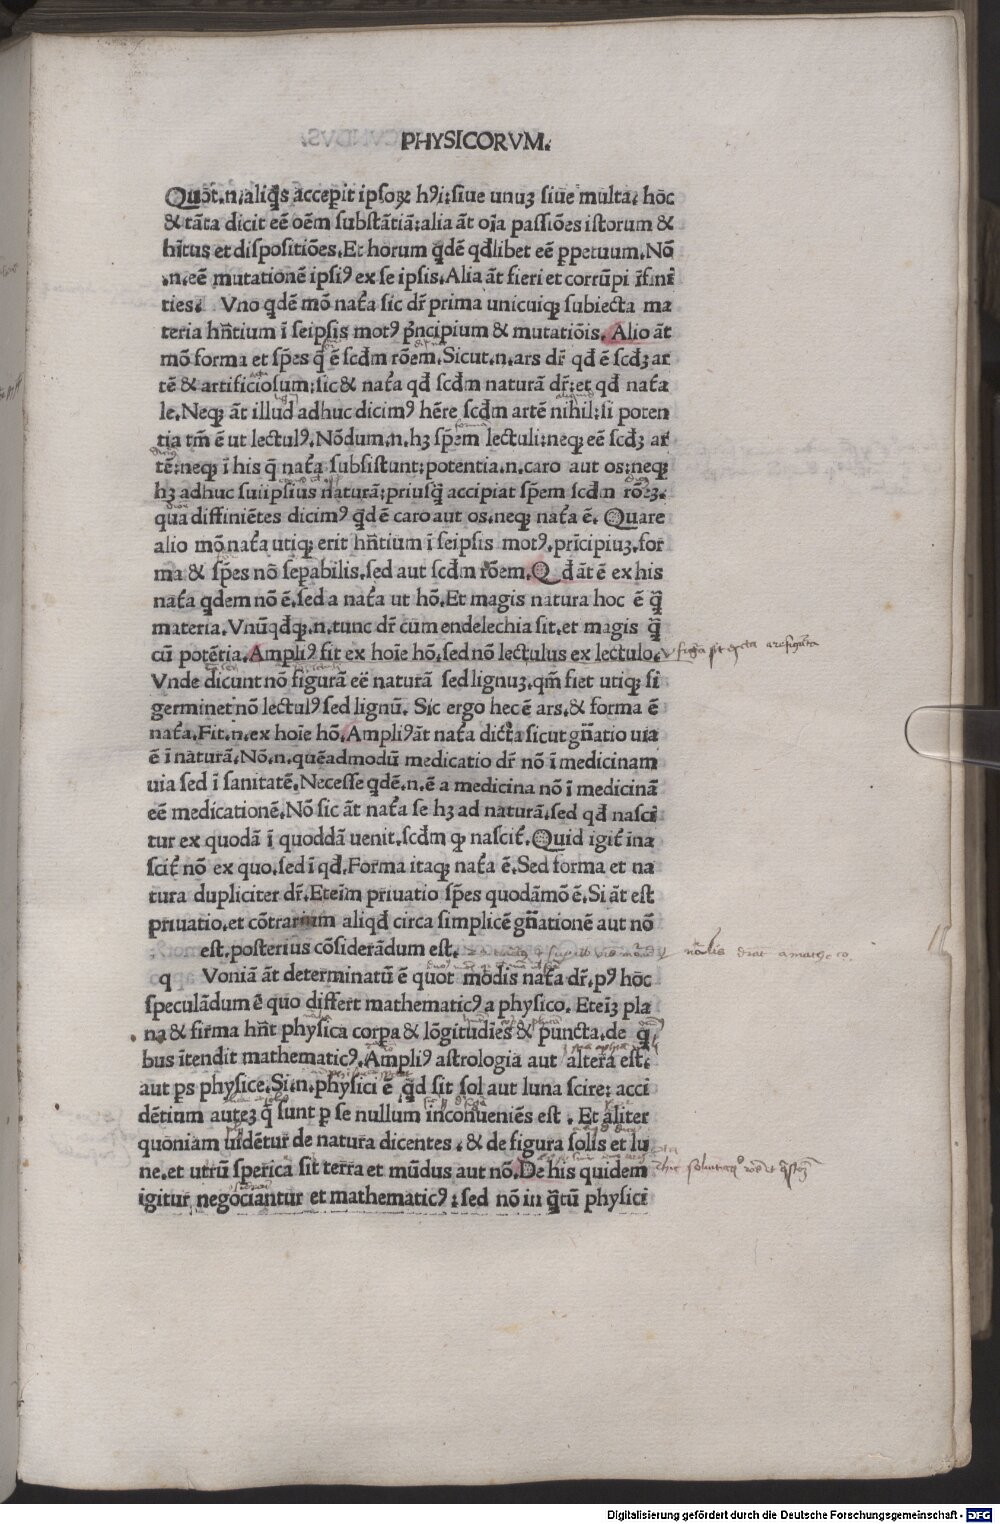 PHYSICORVM.
Quōt.n.aliq̃s accepit ipsoꝝ hꝰi:siue unuꝫ siue multa: hōc
& tāta dicit eē oēm substātiā:alia āt oīa passiōes istorum &
hītus et dispositiōes.Et horum q̃dē qđlibet eē ꝑpetuum.Nō
.n.eē mutationē ipsiꝰ ex se ipsis.Alia āt fieri et corrūpi īfini
ties. Vno q̃dē mō nat̃a sic dr̄ prima unicuiqꝫ subiecta ma
teria hñtium ī seipsis motꝰ p̃ncipium & mutatiōis.Alio āt
mō forma et sp̄es q̃ ē scđm rōem.Sicut.n.ars dr̄ qđ ē scđꝫ ar
tē & artificiosum:sic & nat̃a qđ scđm naturā dr̄:et qđ nat̃a
le.Neqꝫ āt illud adhuc dicimꝰ hēre scđm artē nihil:si poten
tia tm̄ ē ut lectulꝰ.Nōdum.n.hꝫ sp̄em lectuli:neqꝫ eē scđꝫ ar
tē:neqꝫ ī his q̃ nat̃a subsistunt:potentia.n.caro aut os:neqꝫ
hꝫ adhuc sui ipsius naturā:priusq̃ accipiat sp̄em scđm rōeꝫ.
qua diffiniētes dicimꝰ q̃d ē caro aut os.neqꝫ nat̃a ē.Quare
alio mō nat̃a utiqꝫ erit hñtium ī seipsis motꝰ.prīcipiuꝫ.for
ma & sp̄es nō sepabilis.sed aut scđm rōem.Qđ āt ē ex his
nat̃a q̃dem nō ē.sed a nat̃a ut hō.Et magis natura hoc ē q̃
materia.Vnūqđqꝫ.n.tunc dr̄ cum endelechia sit.et magis q̃
cū potētia.Ampliꝰ fit ex hoīe hō.sed nō lectulus ex lectulo.
Vnde dicunt nō figurā eē naturā sed lignuꝫ.qm̄ fiet utiqꝫ si
germinet nō lectulꝰ sed lignū. Sic ergo hec ē ars.& forma ē
nat̃a.Fit.n.ex hoīe hō.Ampliꝰ āt nat̃a dicta sicut gñatio uia
ē ī naturā.Nō.n.quēadmodū medicatio dr̄ nō ī medicinam
uia sed ī sanitatē.Necesse q̃dē.n.ē a medicina nō ī medicinā
eē medicationē.Nō sic āt nat̃a se hꝫ ad naturā.sed qđ nasci
tur ex quodā ī quoddā uenit.scđm qꝫ nascit̃.Quid igit̃ ina
scit̃ nō ex quo.sed ī qđ.Forma itaqꝫ nat̃a ē.Sed forma et na
tura dupliciter dr̄.Eteīm priuatio sp̄es quodāmō ē.Si āt est
priuatio.et cōtrarium aliqđ circa simplicē gñationē aut nō
est.posterius cōsiderādum est.
q Voniā āt determinatū ē quot modis nat̃a dr̄.pꝰ hōc
speculādum ē quo differt mathematicꝰ a physico.Eteiꝫ pla
na & firma hñt physica corpa & lōgitudies & puncta.de q̃
bus ītendit mathematicꝰ.Ampliꝰ astrologia aut altera est.
aut ps physice.Si.n.physici ē q̃d sit sol aut luna scire: acci
dētium auteꝫ q̃ sunt p se nullum inconueniēs est . Et aliter
quoniam uidētur de natura dicentes . & de figura solis et lu
ne.et utrū sperica sit terra et mūdus aut nō.De his quidem
igitur negociantur et mathematicꝰ: sed nō in q̃tū physici
Digitalisierung gefördert durch die Deutsche Forschungsgemeinschaft - DFG